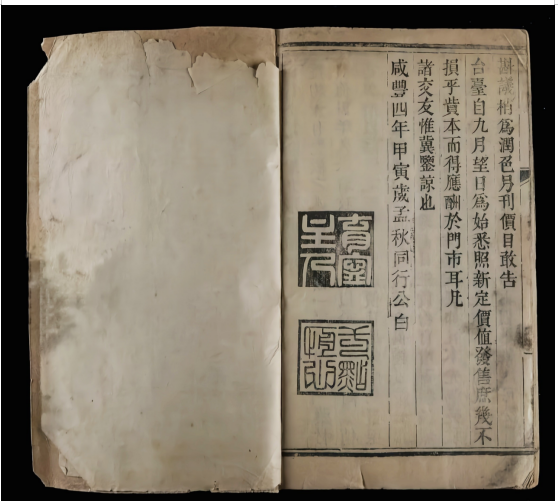 議柏爲潤色另刊價目敢告
台臺自九月望日爲始悉照新定價值發售庶幾不
損乎貲本而得應酬於門市耳凡
諸交友惟冀鑒諒也
咸豐四年甲寅歲孟秋同行公白